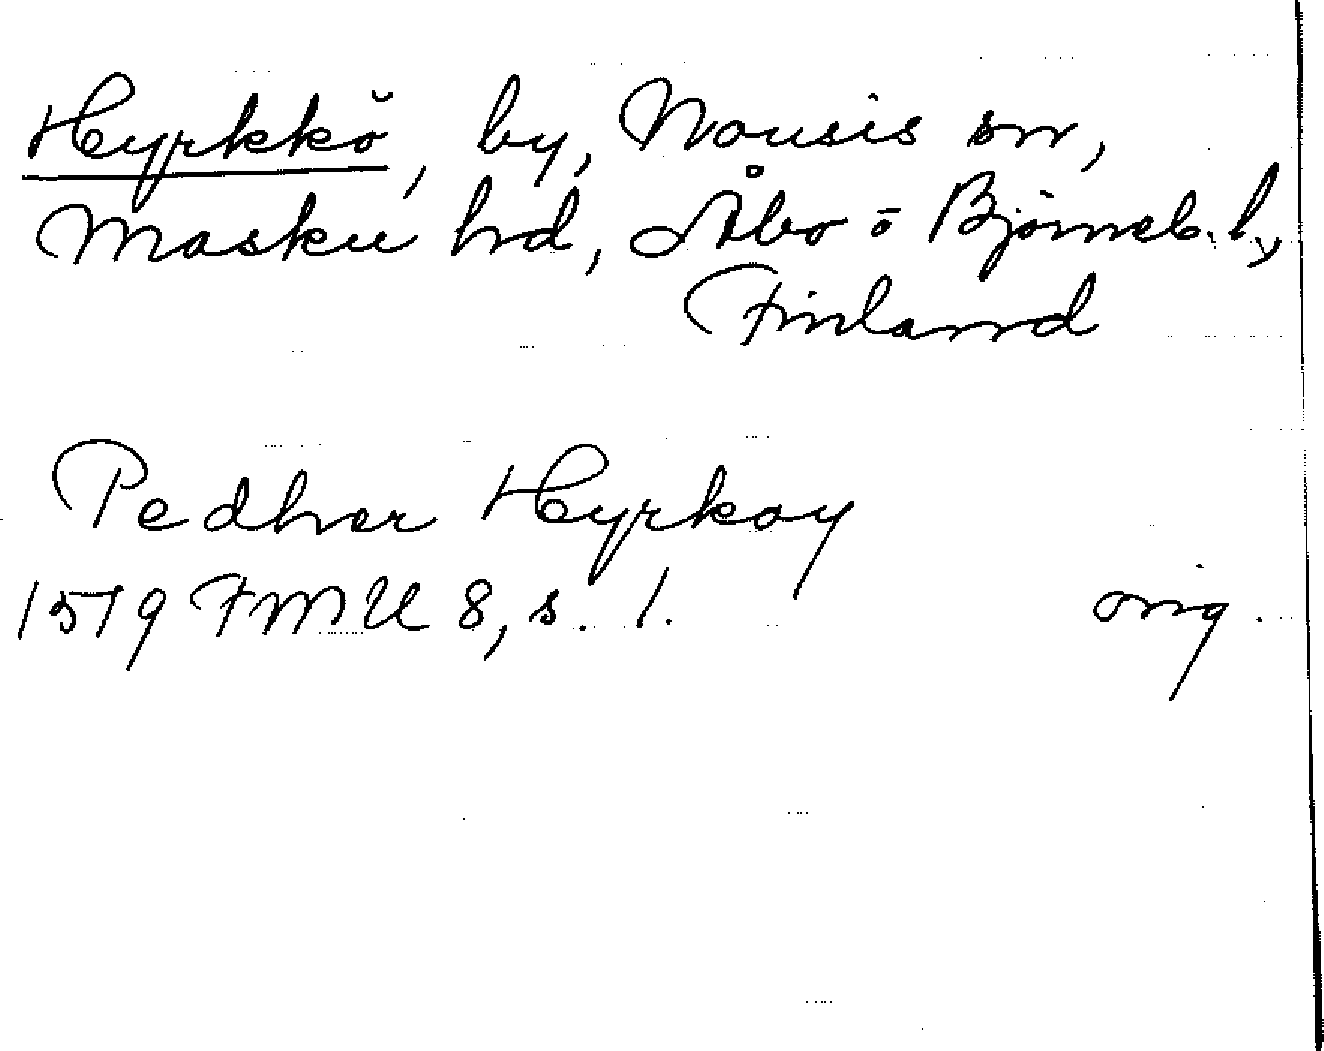 Hyrkkö, by, Nousis sn,
Masku hd, Åbo o Björneb. l,
Finland
Pedher Hyrkoy
1579 FMU 8, s. 1. orig.